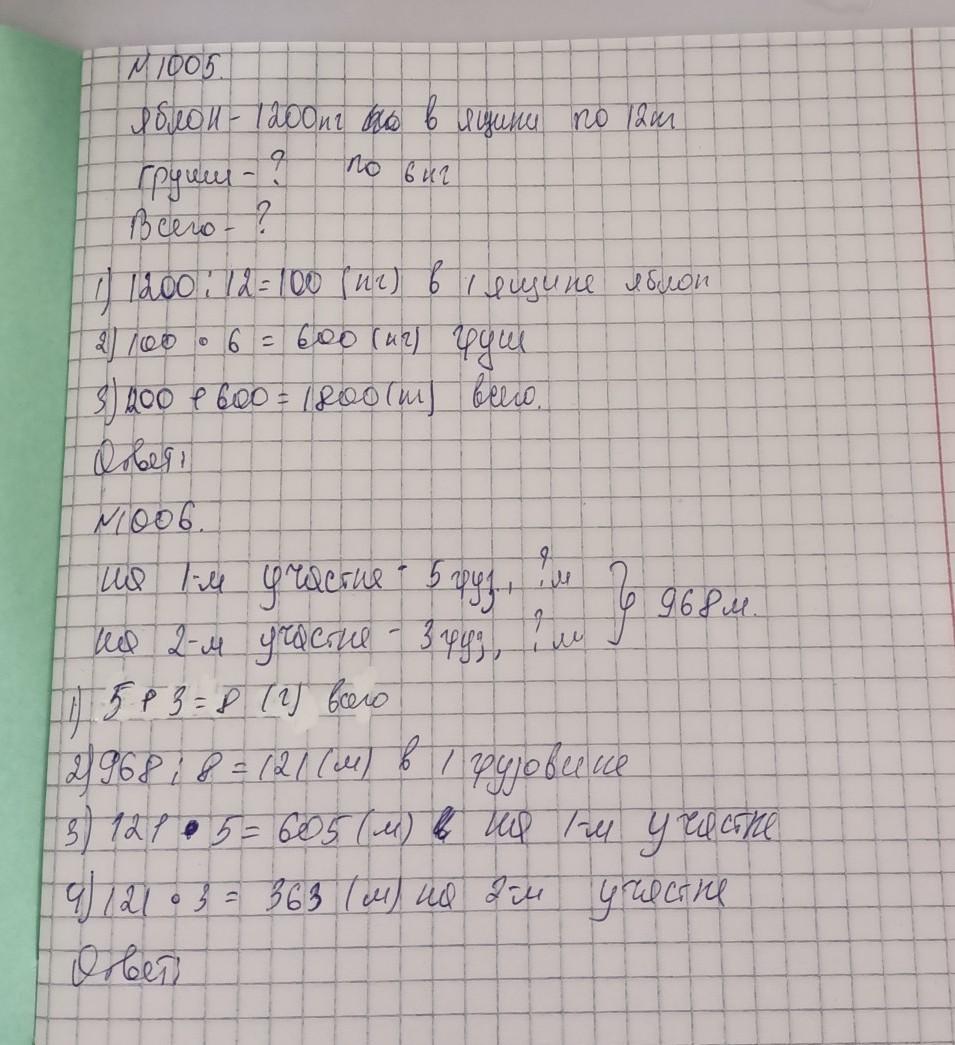 №1005.
Яблон - 1200кг в ящики по 12кг
Груши - ? по 6кг
Всего - ?
1) 1200 : 12 = 100 (кг) в 1 ящике яблок
2) 100 • 6 = 600 (кг) груш
3) 1200 + 600 = 1800 (кг) всего.
Ответ:
№1006.
на 1-м участке - 5 груз, ? м } 968 м.
на 2-м участке - 3 груз, ? м
1) 5 + 3 = 8 (г) всего
2) 968 : 8 = 121 (м) в 1 грузовике
3) 121 • 5 = 605 (м) на 1-м участке
4) 121 • 3 = 363 (м) на 2-м участке
Ответ: